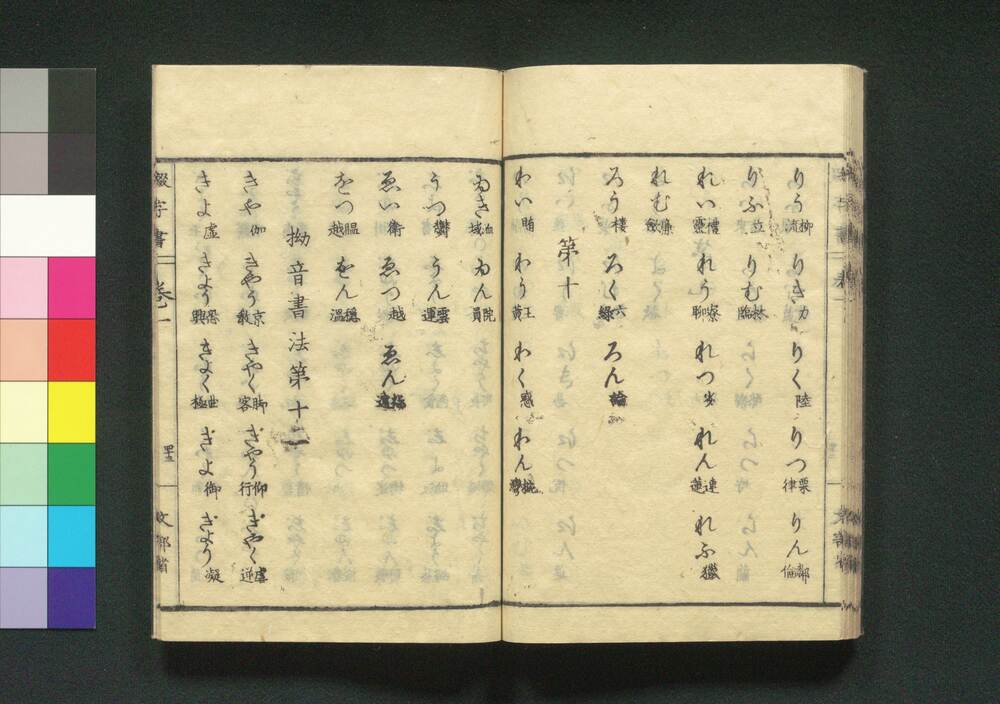 りう柳流 りき力 りく陸 りつ栗律 りん鄰倫
りふ立 りむ林臨
れい禮靈 れう寮聊 れつ劣 れん連蓮 れふ獵
れむ斂
ろう樓 ろく六綠 ろん論
第十
わい賄 わう王黄 わく惑 わん灣
ゐき域 ゐん院員
うつ鬱 うん雲運
ゑい衛 ゑつ越 ゑん遠
をつ膃越 をん穩溫
拗音書法第十二
きや伽 きやう京敎 きやく脚客 ぎやう仰行 ぎやく虐逆
きよ虛 きよう恐興 きよく曲極 ぎよ御 ぎよう凝
綴字書 卷一
文部省